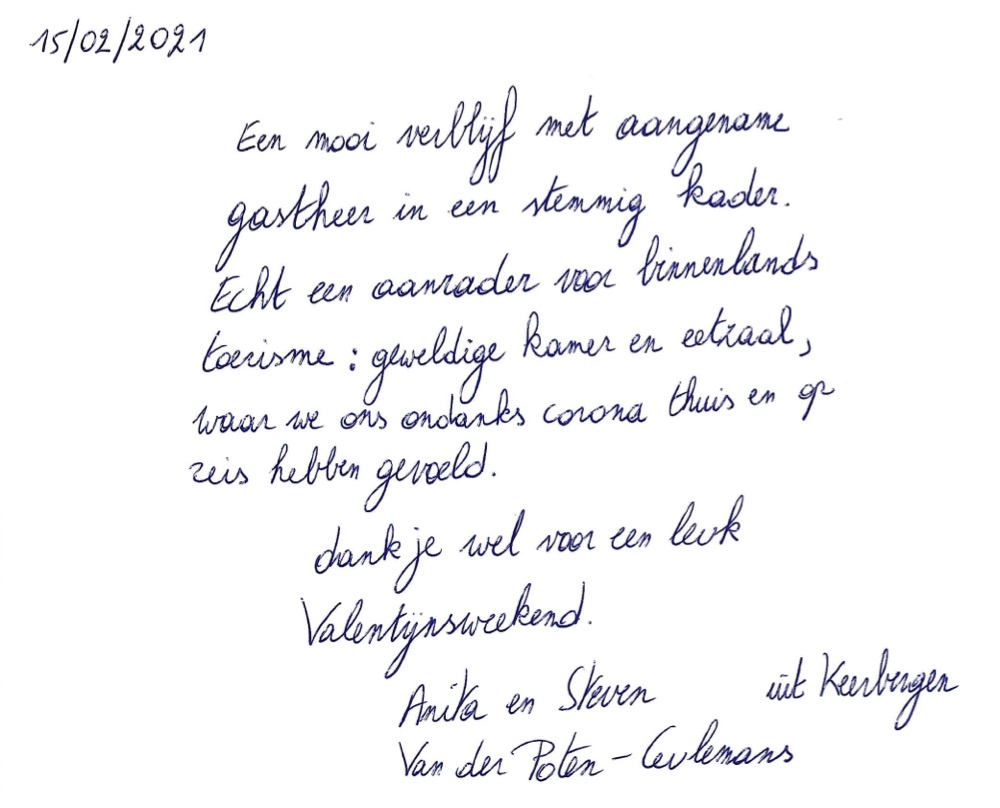 15/02/2021
Een mooi verblijf met aangename
gastheer in een stemmig kader.
Echt een aanrader voor binnenlands
toerisme : geweldige kamer en eetzaal,
waar we ons ondanks corona thuis en op
reis hebben gevoeld.
dank je wel voor een leuk
Valentijnsweekend.
Anita en Steven uit Keerbergen
Van der Poten - Ceulemans